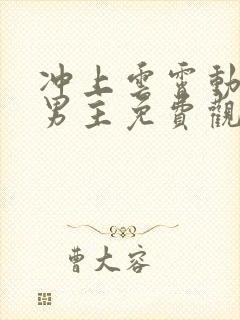 冲上雲霄動
男主免費觀
曹大容